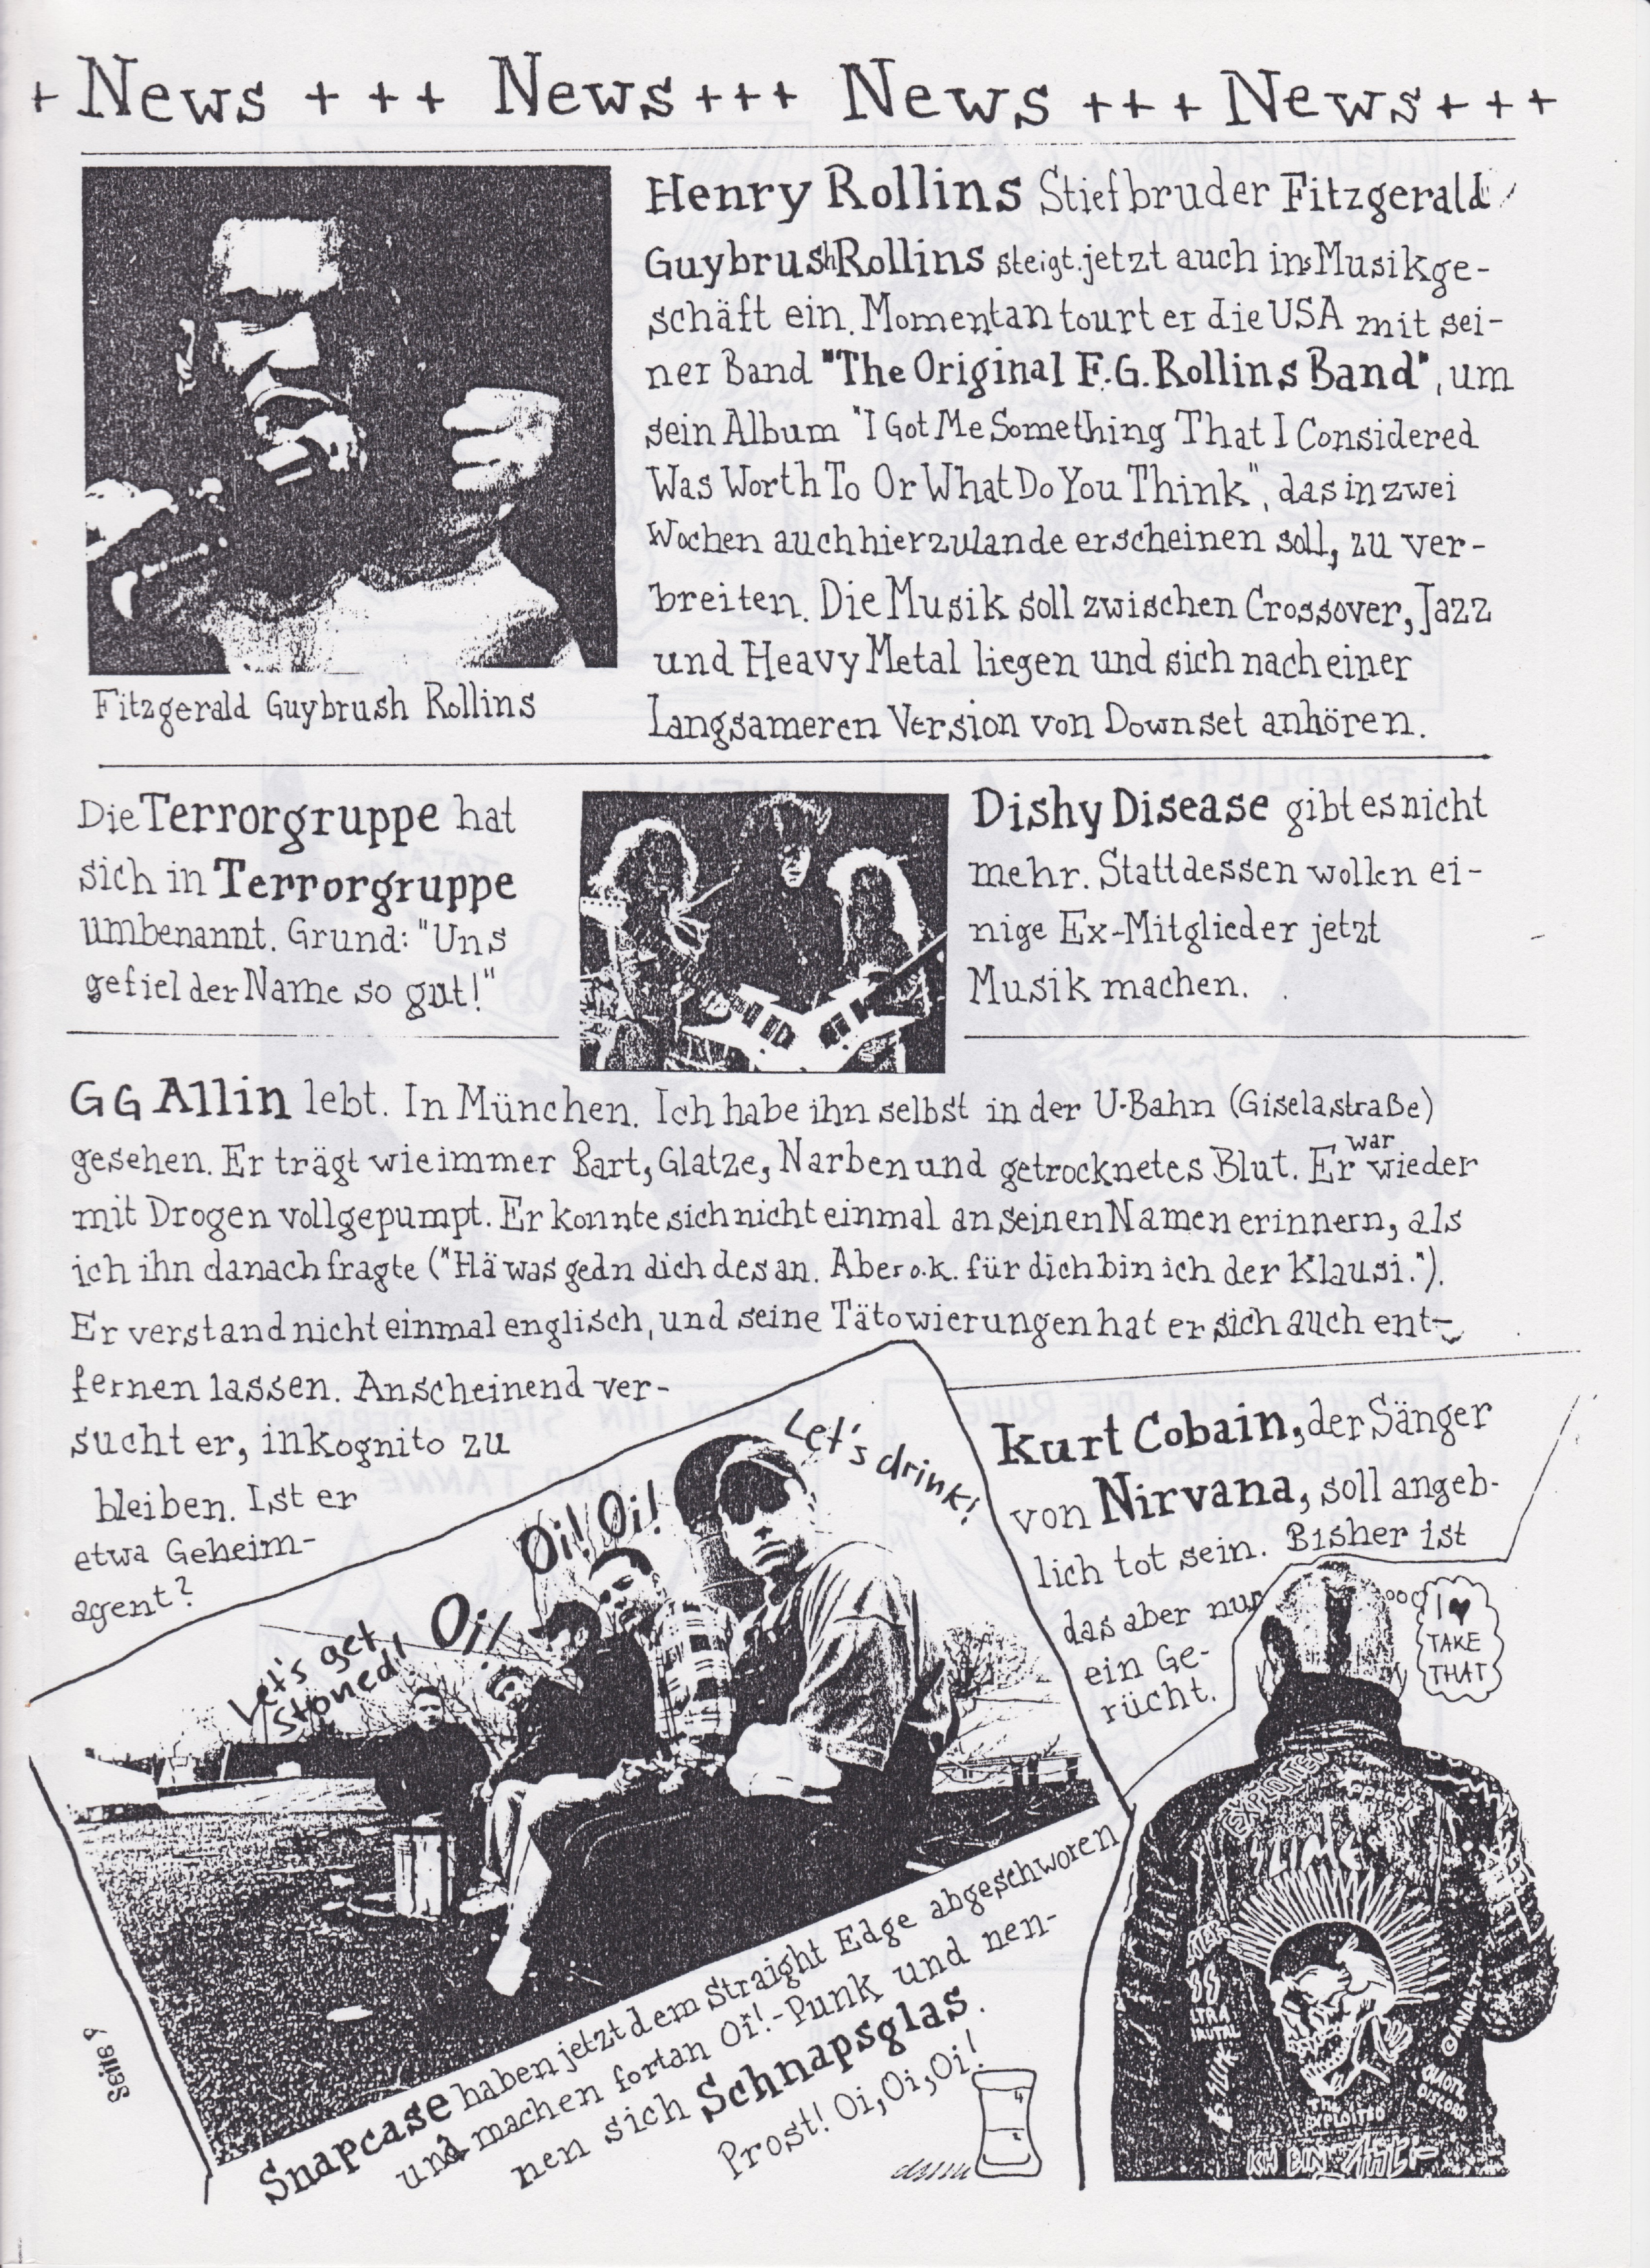 + News + + + News + + + News + + + News + + +
Henry Rollins Stiefbruder Fitzgerald
Guybrush Rollins steigt jetzt auch ins Musikge-
schäft ein. Momentan tourt er die USA mit sei-
ner Band "The Original F.G. Rollins Band", um
sein Album "I Got Me Something That I Considered
Was Worth To Or What Do You Think", das in zwei
Wochen auch hierzulande erscheinen soll, zu ver-
breiten. Die Musik soll zwischen Crossover, Jazz
und Heavy Metal liegen und sich nach einer
langsameren Version von Downset anhören.
Fitzgerald Guybrush Rollins
Die Terrorgruppe hat
sich in Terrorgruppe
umbenannt. Grund: "Uns
gefiel der Name so gut!"
Dishy Disease gibt es nicht
mehr. Stattdessen wollen ei-
nige Ex-Mitglieder jetzt
Musik machen.
GG Allin lebt. In München. Ich habe ihn selbst in der U-Bahn (Giselastraße)
gesehen. Er trägt wie immer Bart, Glatze, Narben und getrocknetes Blut. Er war wieder
mit Drogen vollgepumpt. Er konnte sich nicht einmal an seinen Namen erinnern, als
ich ihn danach fragte ("Hä was gedn dich des an. Aber o.k. für dich bin ich der Klausi.").
Er verstand nicht einmal englisch, und seine Tätowierungen hat er sich auch ent-
fernen lassen. Anscheinend ver-
sucht er, inkognito zu
bleiben. Ist er
etwa Geheim-
agent?
Let's get
stoned!
Oi!
Oi! Oi!
Let's drink!
Kurt Cobain, der Sänger
von Nirvana, soll angeb-
lich tot sein. Bisher ist
das aber nur
ein Ge-
rücht.
I ♥
TAKE
THAT
Snapcase haben jetzt dem Straight Edge abgeschworen
und machen fortan Oi!-Punk und nen-
nen sich Schnapsglas.
Prost! Oi, Oi, Oi!
EXPLOITED
SLIME
THE
EXPLOITED
CHAOTIC
DISCORD
ICH BIN
Seite 7